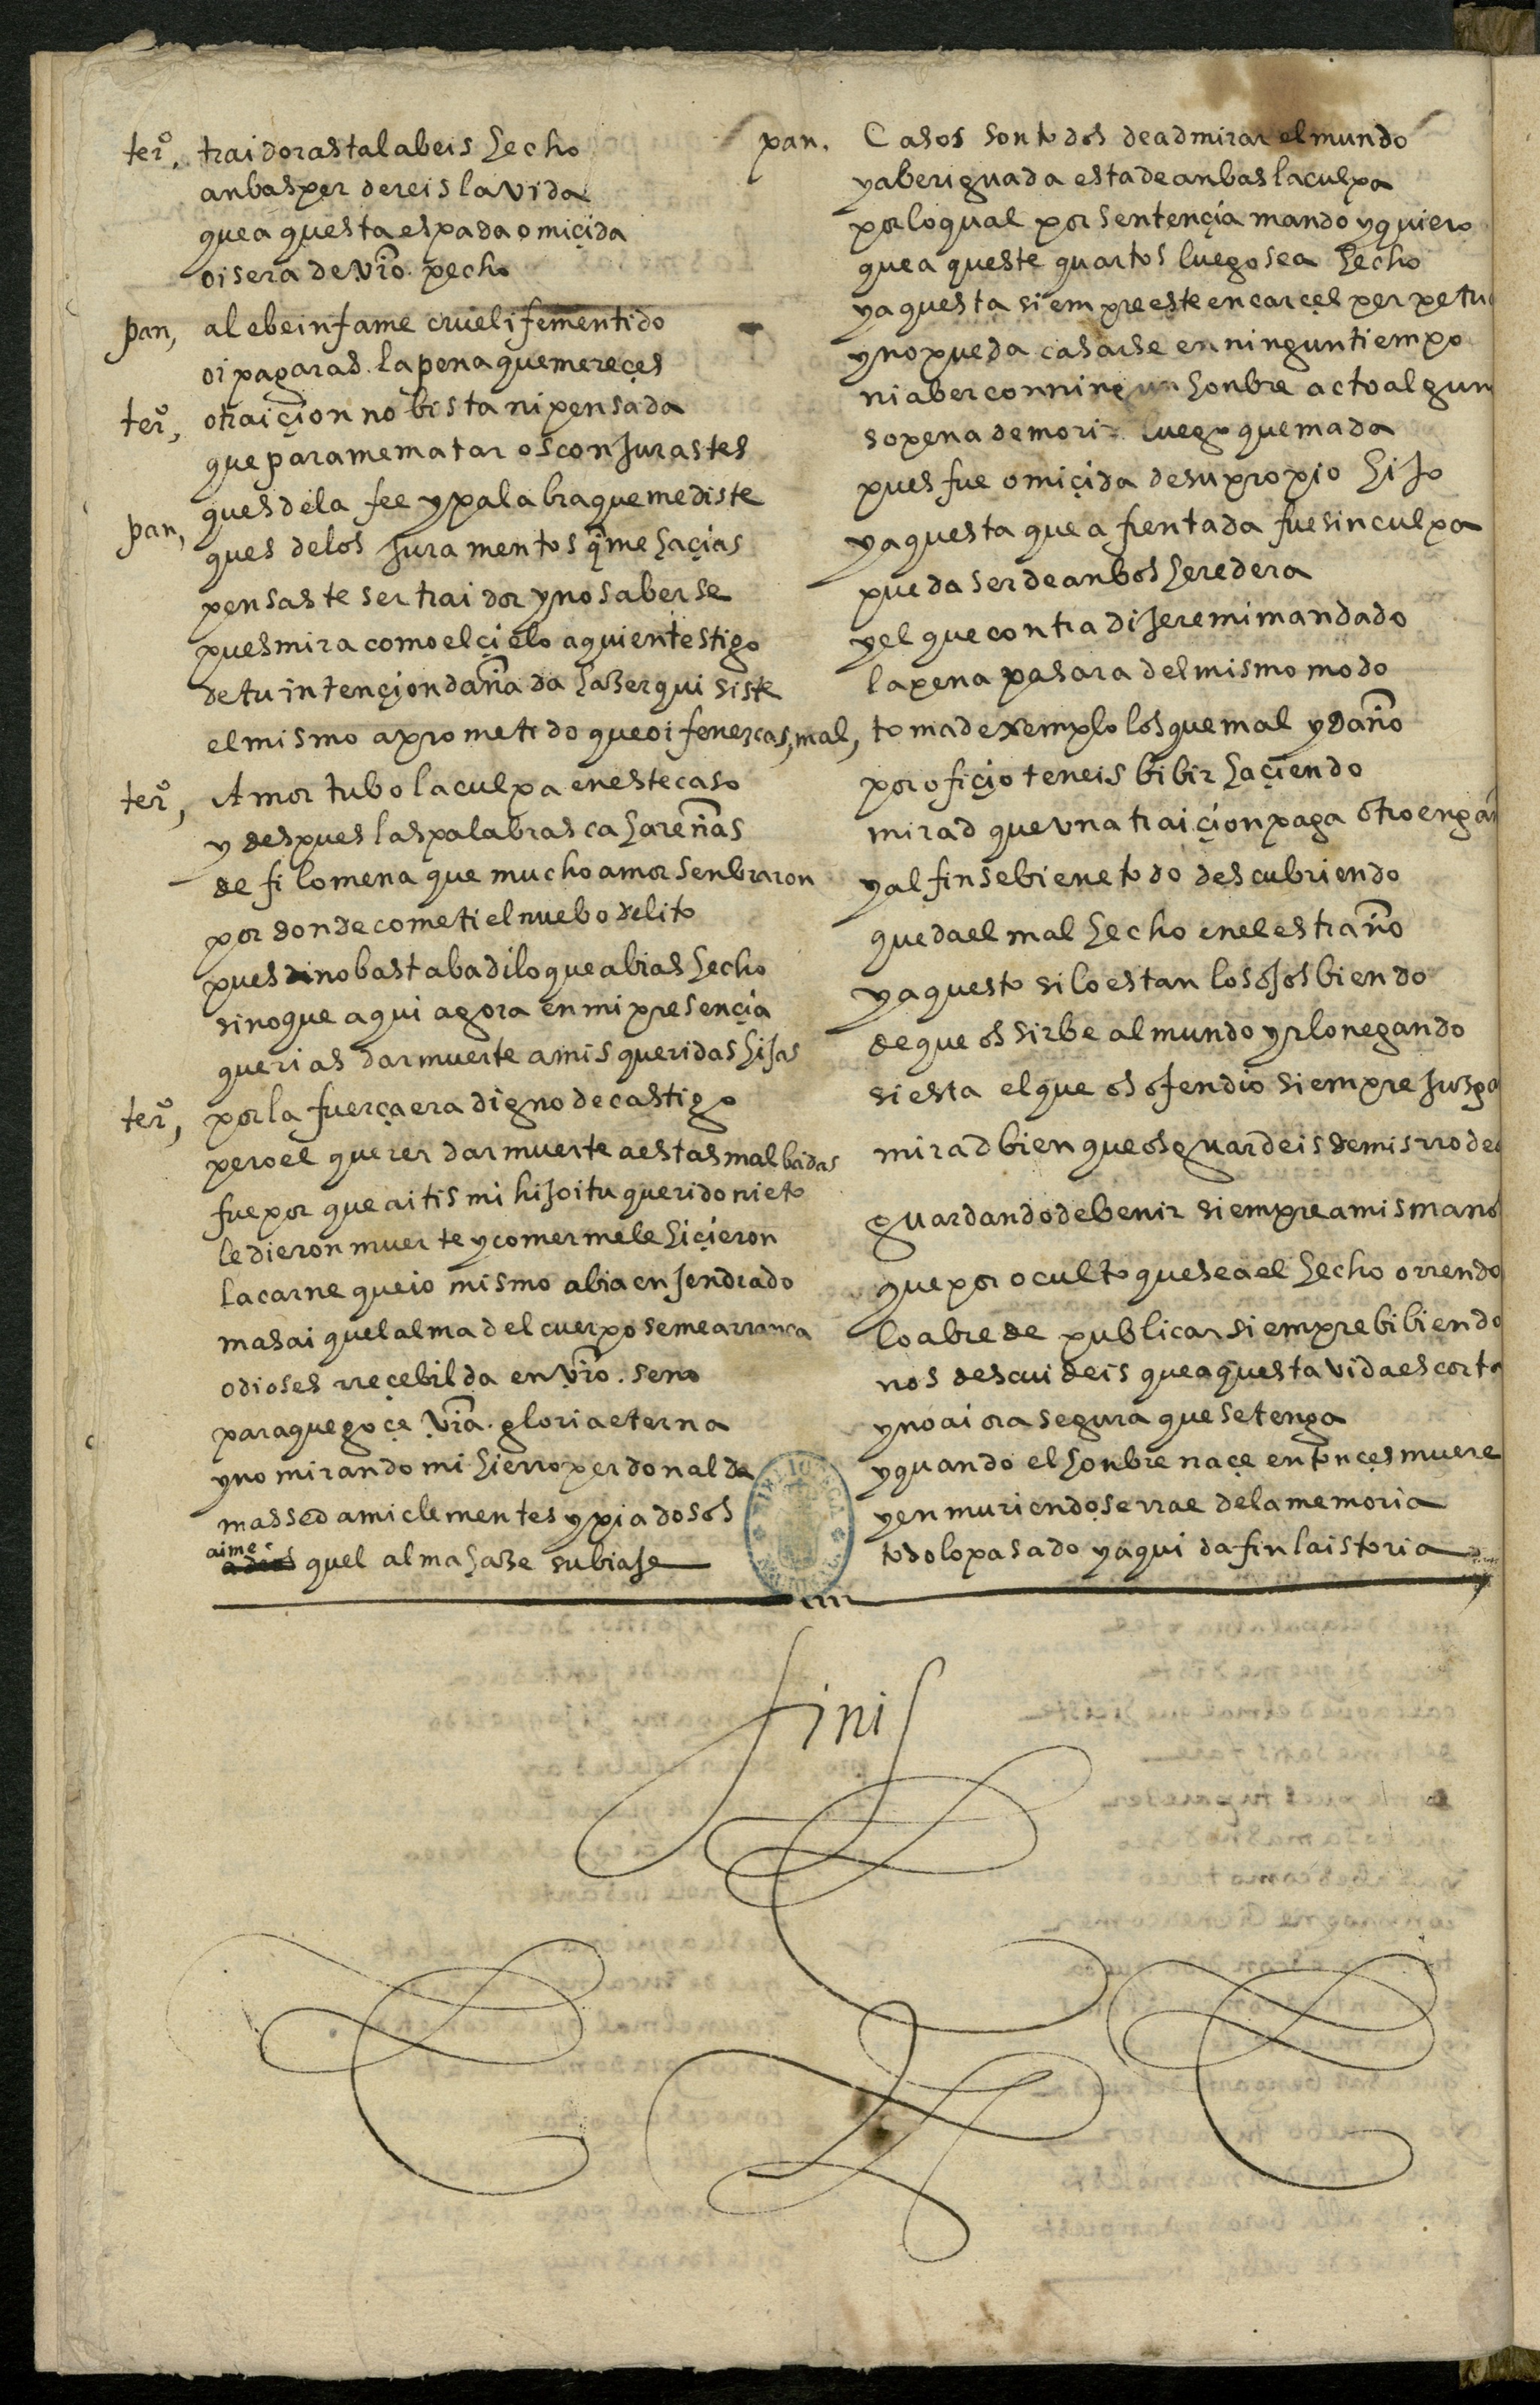 terº, traidoras tal abeis hecho
anbas perdereis la vida
que aquesta espada omiçida
oi sera de vrõ. pecho
pan, alebe infame cruel i fementido
oi pagaras la pena que mereçes
terº, o traiçion no bista ni pensada
que para me matar os conjurastes
pan, ques de la fee y palabra que me diste
ques de los juramentos q̃ me haçias
pensaste ser traidor y no saberse
pues mira como el çielo a quien testigo
de tu intençion dañada haser quisiste
el mismo a prometido que oi fenezcas,
terº, Amor tubo la culpa en este caso
y despues las palabras cahareñas
de filomena que mucho amor senbraron
por donde cometi el nuebo delito
pues di no bastaba di lo que abias hecho
sino que aqui agora en mi presençia
querias dar muerte a mis queridas hijas
terº, por la fuerça era digno de castigo
pero el querer dar muerte a estas malbadas
fue por que a itis mi hijo i tu querido nieto
le dieron muerte y comer me le hiçieron
la carne que io mismo abia enjendrado
mas ai quel alma del cuerpo se me arranca
o dioses rreçebilda en vrõ. seno
para que goçe vrã. gloria eterna
y no mirando mi hierro perdonalda
mas sed a mi clementes y piadosos
aime quel alma haze su biaje
pan. Casos son todos de admirar el mundo
y aberiguada esta de anbas la culpa
por lo qual por sentençia mando y quiero
que aqueste quartos luego sea hecho
y aquesta siempre este en carçel perpetu
y no pueda casarse en ningun tiempo
ni aber con ningun honbre acto algun
so pena de morir luego quemada
pues fue omiçida de su propio hijo
y aquesta que afrentada fue sin culpa
pueda ser de anbos heredera
y el que contradijere mi mandado
la pena pasara del mismo modo
mal, tomad exemplo los que mal y daño
por ofiçio teneis bibir haçiendo
mirad que vna traiçion paga otro engañ
y al fin se biene todo descubriendo
queda el mal hecho en el estraño
y aquesto si lo estan los ojos biendo
de que os sirbe al mundo yrlo negando
si esta el que os ofendio siempre juzga
mirad bien que os guardeis de mis rrode
guardando de benir siempre a mis manos
que por oculto que sea el hecho orrendo
lo abre de publicar siempre bibiendo
nos descuideis que aquesta vida es corta
y no ai ora segura que se tenga
y quando el honbre naçe entonçes muere
y en muriendo se rrae de la memoria
todo lo pasado y aqui da fin la istoria
finis